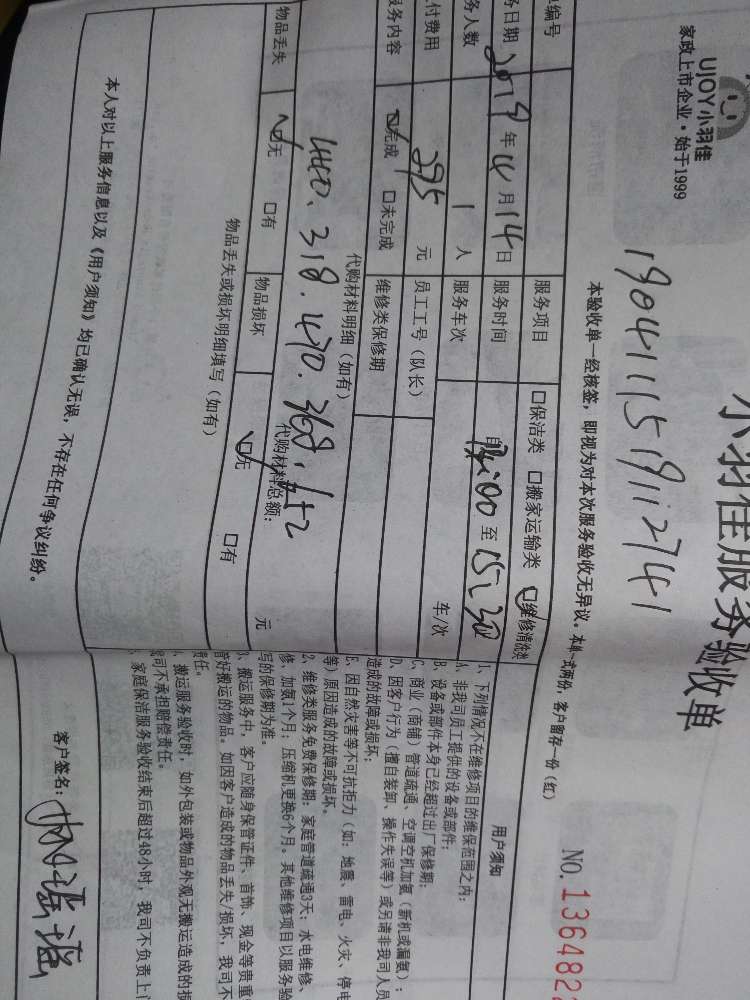 UJOY小羽佳
家政上市企业·始于1999
小羽佳服务验收单
1904111519112741
本验收单一经核签，即视为对本次服务验收无异议。本单一式两份，客户留存一份（红）
NO.136482
编号
服务项目 口保洁类 口搬家运输类 维修清洗类
日期 2019年4月14日 服务时间 自 :00 至 15:30
务人数 1 人 服务车次 车/次
付费用 295 元 员工工号（队长）
服务内容 完成 口未完成 维修类保修期
代购材料明细（如有）
440.318.470.368.
代购材料总额： 元
物品丢失 无 口有 物品损坏 无 口有
物品丢失或损坏明细填写（如有）
本人对以上服务信息以及《用户须知》均已确认无误，不存在任何争议纠纷。
用户须知
1、下列情况不在维修项目的维保范围之内：
A、非我司员工提供的设备或部件；
B、设备或部件本身已经超过出厂保修期；
C、商业（商铺）管道疏通、空调空机加氨（新机或漏氨）；
D、因客户行为（擅自装卸、操作失误等）或另请非我司人员
造成的故障或损坏；
E、因自然灾害等不可抗拒力（如：地震、雷电、火灾、停电
等）原因造成的故障或损坏。
2、维修类服务免费保修期：家庭管道疏通3天；水电维修、
修、加氨1个月；压缩机更换6个月。其他维修项目以服务验
写的保修期为准。
3、搬运服务中，客户应随身保管证件、首饰、现金等贵重
管好搬运的物品。如因客户造成的物品丢失/损坏，我司不
责任。
、搬运服务验收时，如外包装或物品外观无搬运造成的损
我司不承担赔偿责任。
、家庭保洁服务验收结束后超过48小时，我司不负责上门
客户签名：